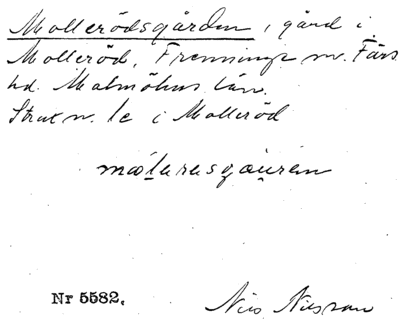 Mollerödsgården, gård i
Molleröd, Frenninge sn. Färs
hd. Malmöhus län.
Strax n. le i Molleröd
Nr 5582.
Nils Nilsson